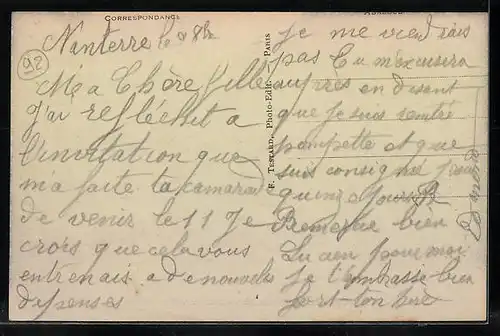 CORRESPONDANCE
ADRESSE
92
Nanterre le 8
Ma Chère fille
J'ai reflechit a
l'invitation que
m'a faite ta kamarade
de venir le 11 Je
crois que cela vous
entrenais a de nouvelles
depenses
F. TESTARD, Photo-Edit., PARIS
je me viendrais
pas tu m'excusera
auprres en disant
que je suis rentré
pompette et que
suis consigné pour
quinze jours
Remercie bien
Lucien pour moi
Je t'embrasse bien
fort ton père